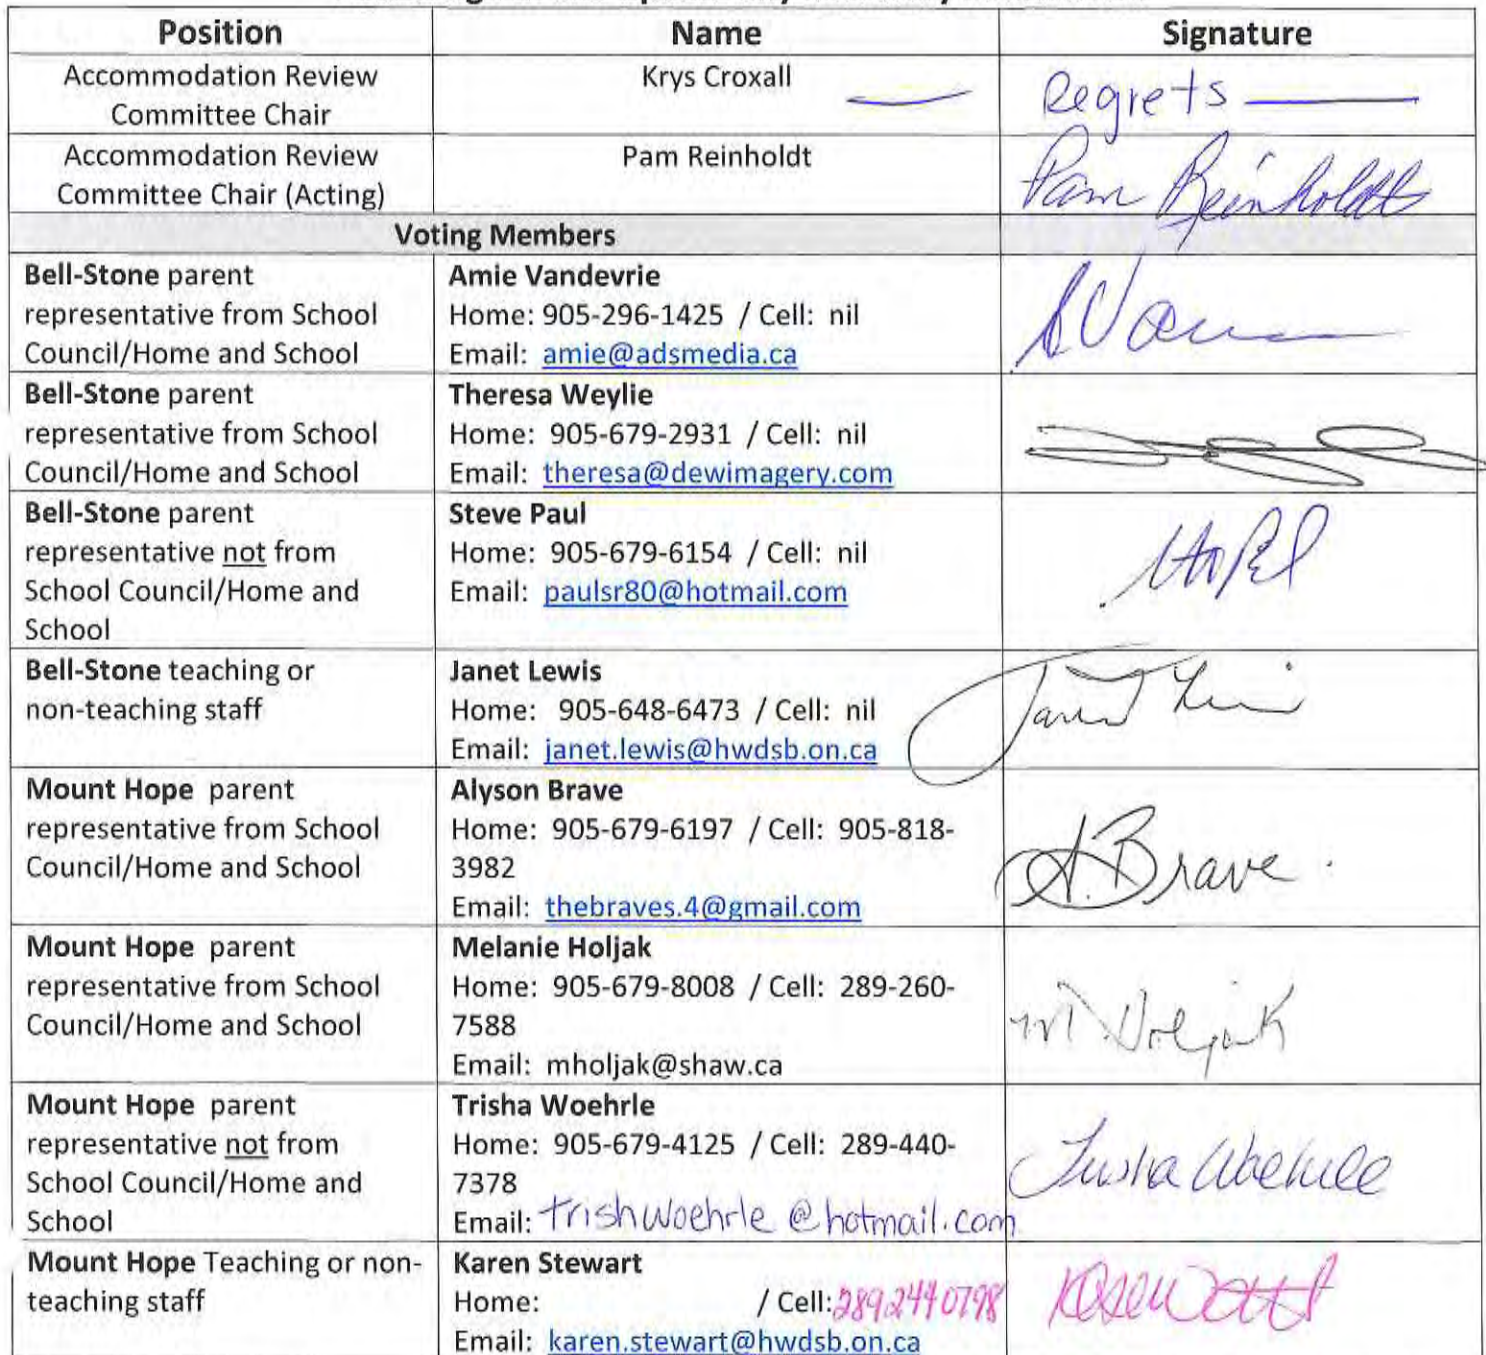 Position Name Signature
Accommodation Review Committee Chair
Krys Croxall
Regrets
Accommodation Review Committee Chair (Acting)
Pam Reinholdt
Pam Reinholdt
Voting Members
Bell-Stone parent
representative from School
Council/Home and School
Amie Vandevrie
Home: 905-296-1425 / Cell: nil
Email: amie@adsmedia.ca
Bell-Stone parent
representative from School
Council/Home and School
Theresa Weylie
Home: 905-679-2931 / Cell: nil
Email: theresa@dewimagery.com
Bell-Stone parent
representative not from
School Council/Home and
School
Steve Paul
Home: 905-679-6154 / Cell: nil
Email: paulsr80@hotmail.com
Bell-Stone teaching or
non-teaching staff
Janet Lewis
Home: 905-648-6473 / Cell: nil
Email: janet.lewis@hwdsb.on.ca
Mount Hope parent
representative from School
Council/Home and School
Alyson Brave
Home: 905-679-6197 / Cell: 905-818-
3982
Email: thebraves.4@gmail.com
A. Brave
Mount Hope parent
representative from School
Council/Home and School
Melanie Holjak
Home: 905-679-8008 / Cell: 289-260-
7588
Email: mholjak@shaw.ca
M. Holjak
Mount Hope parent
representative not from
School Council/Home and
School
Trisha Woehrle
Home: 905-679-4125 / Cell: 289-440-
7378
Email: trishwoehrle@hotmail.com
Trisha Woehrle
Mount Hope Teaching or non-
teaching staff
Karen Stewart
Home: / Cell: 2892440798
Email: karen.stewart@hwdsb.on.ca